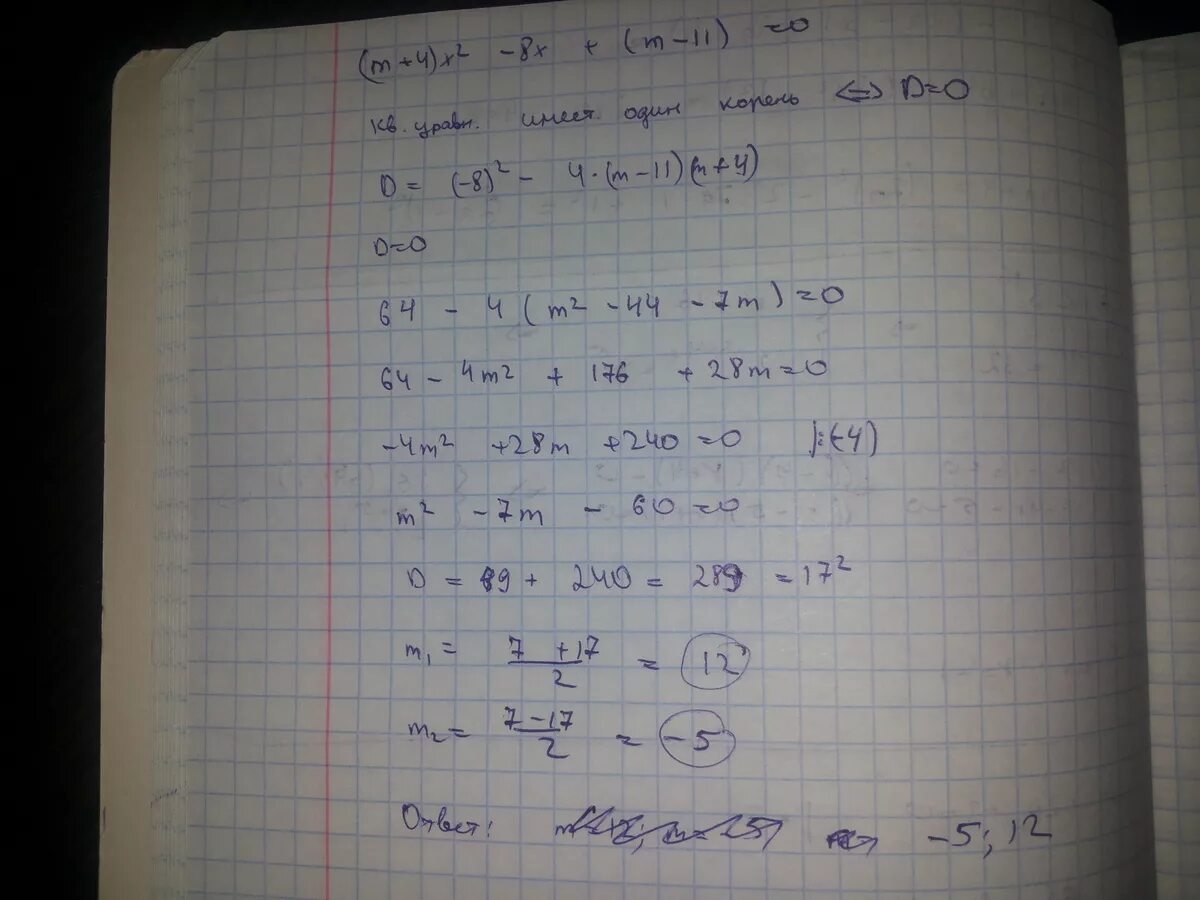 (m+4)x² -8x + (m-11) =0
кв. уравн. имеет. один корень <=> D=0
D = (-8)² - 4·(m-11)(m+4)
D=0
64 - 4(m² -44 -7m)=0
64 - 4m² + 176 + 28m=0
-4m² +28m +240 =0 |:(-4)
m² -7m - 60 =0
D = 49 + 240 = 289 = 17²
m₁ = (7 +17)/2 = 12
m₂ = (7-17)/2 = -5
Ответ: -5; 12